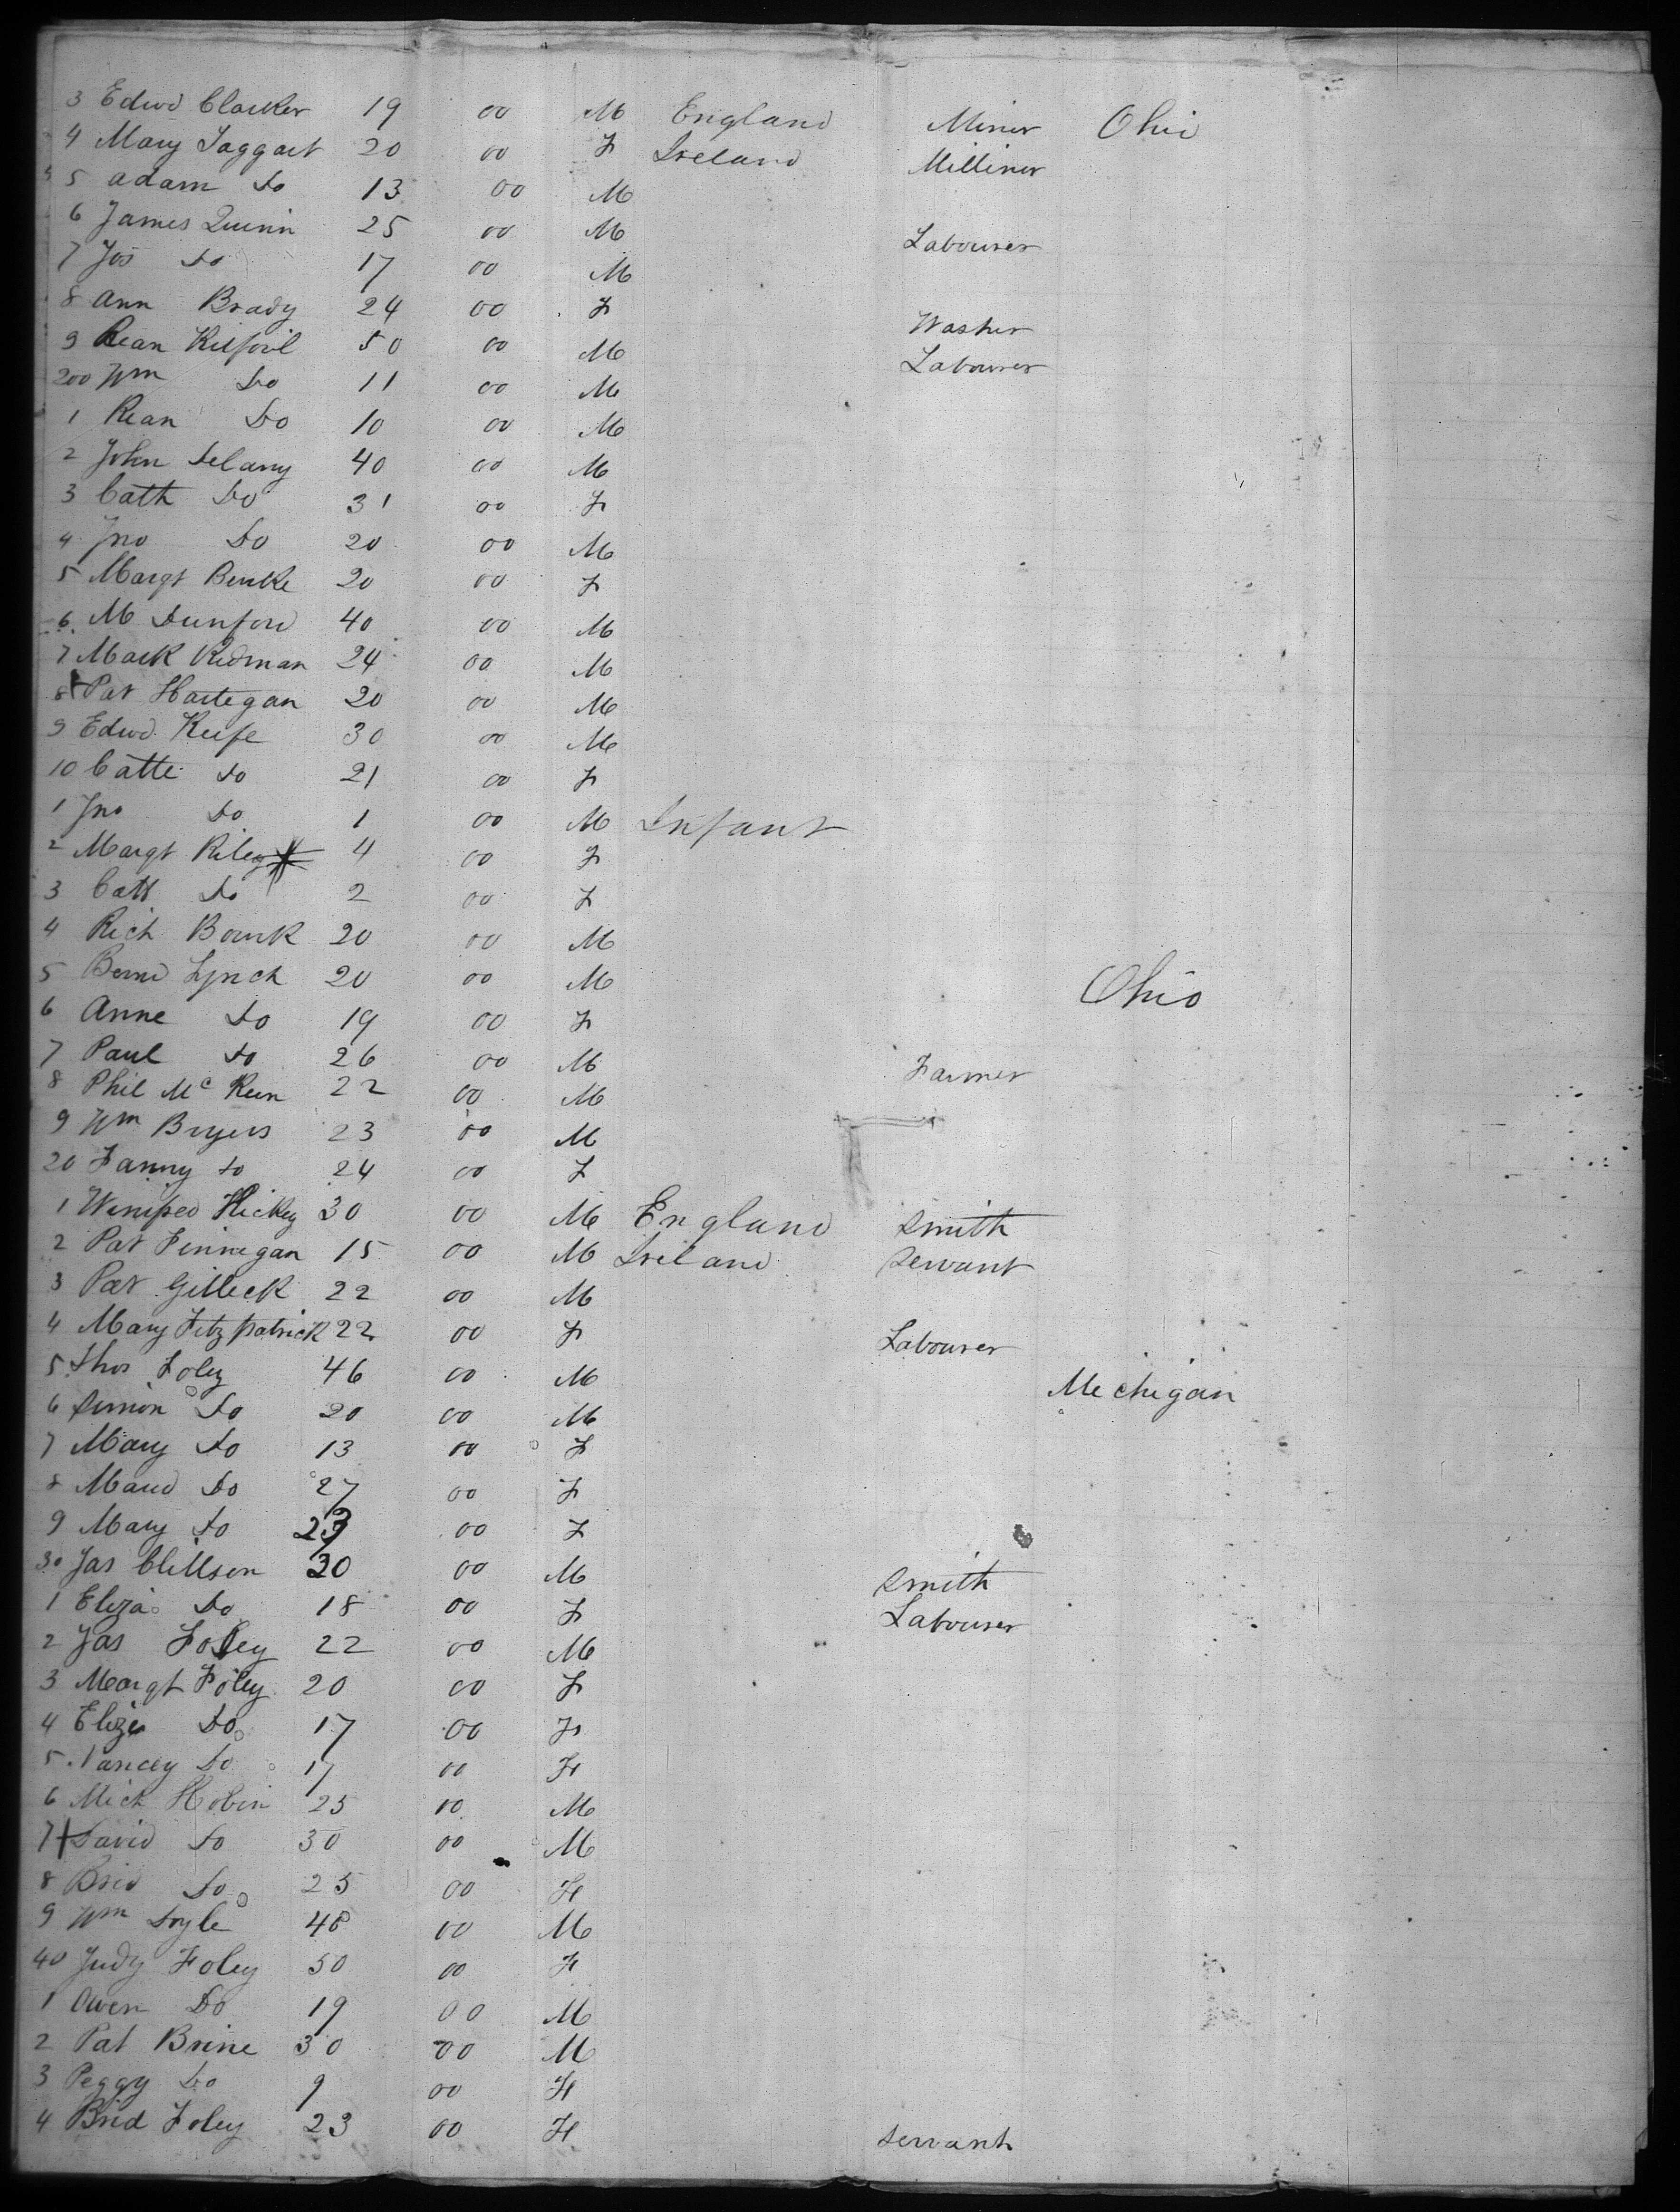 3 Edwd Clarker 19 00 M England Miner Ohio
4 Mary Taggart 20 00 F Ireland Milliner
5 Adam Do 13 00 M
6 James Quinn 25 00 M Labourer
7 Jos Do 17 00 M
8 Ann Brady 24 00 F Washer
9 Kean Kilfoil 50 00 M Labourer
200 Wm Do 11 00 M
1 Kean Do 10 00 M
2 John Delany 40 00 M
3 Cath Do 31 00 F
4 Jno Do 20 00 M
5 Margt Burke 20 00 F
6 M Dunford 40 00 M
7 Mark Redman 24 00 M
8 Pat Hartegan 20 00 M
9 Edwd Keefe 30 00 M
10 Catte Do 21 00 F
1 Jno Do 1 00 M Infant
2 Margt Riley 4 00 F
3 Catt Do 2 00 F
4 Rich Bourk 20 00 M
5 Bernd Lynch 20 00 M Ohio
6 Anne Do 19 00 F
7 Paul Do 26 00 M Farmer
8 Phil Mc Keen 22 00 M
9 Wm Bryers 23 00 M
20 Fanny Do 24 00 F
1 Winifred Hickey 30 00 M England Smith
2 Pat Finnegan 15 00 M Ireland Servant
3 Pat Gilleck 22 00 M
4 Mary Fitzpatrick 22 00 F Labourer
5 Thos Foley 46 00 M Mechigan
6 Simon Do 20 00 M
7 Mary Do 13 00 F
8 Maud Do 27 00 F
9 Mary Do 23 00 F
30 Jas Clillson 30 00 M Smith
1 Eliza Do 18 00 F Labourer
2 Jas Foley 22 00 M
3 Margt Foley 20 00 F
4 Eliza Do 17 00 F
5 Nancey Do 17 00 F
6 Mich Hobin 25 00 M
7 David Do 30 00 M
8 Brid Do 25 00 F
9 Wm Doyle 48 00 M
40 Judy Foley 50 00 F
1 Owen Do 19 00 M
2 Pat Brine 30 00 M
3 Peggy Do 9 00 F
4 Brid Foley 23 00 F Servant